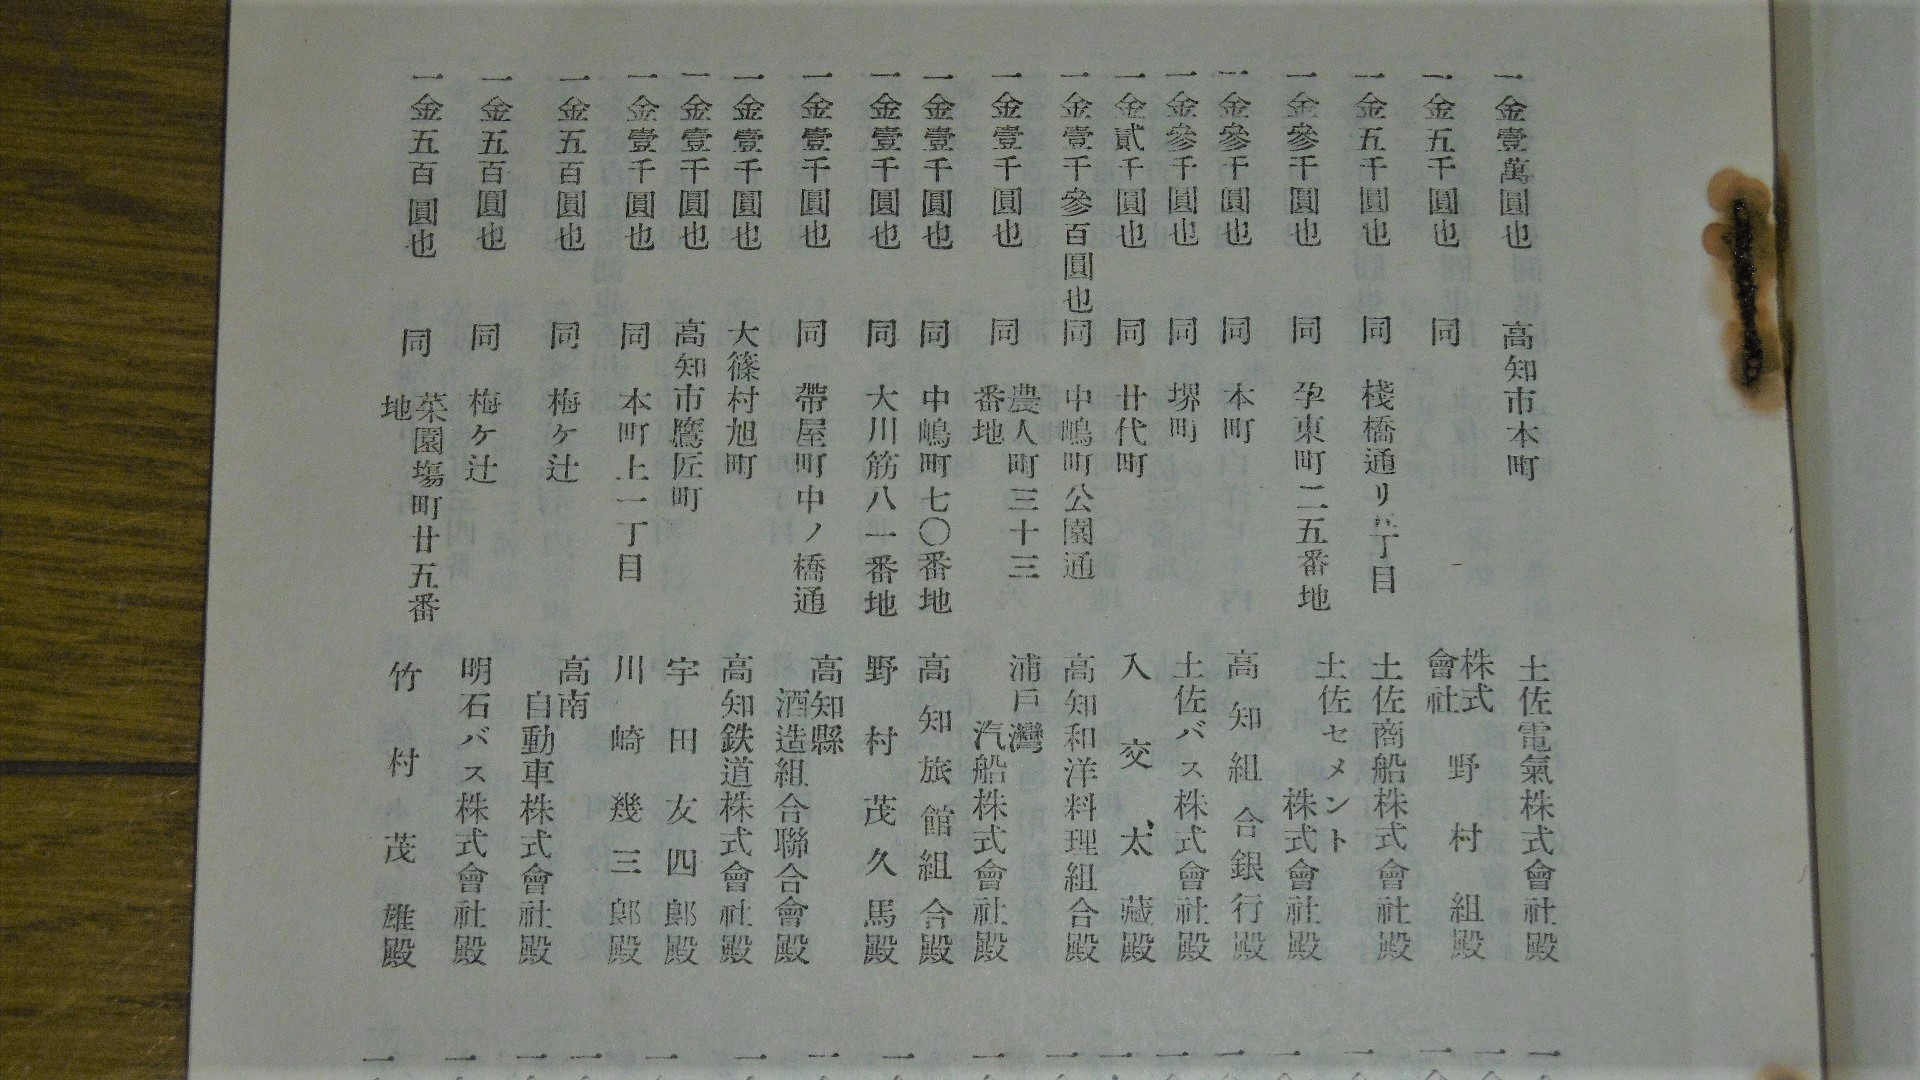 一金壹萬圓也 高知市本町 土佐電氣株式會社殿
一金五千圓也 同 株式會社 野村組殿
一金五千圓也 同 棧橋通リ五丁目 土佐商船株式會社殿
一金參千圓也 同 孕東町二五番地 土佐セメント株式會社殿
一金參千圓也 同 本町 高知組合銀行殿
一金參千圓也 同 堺町 土佐バス株式會社殿
一金貳千圓也 同 廿代町 入交太藏殿
一金壹千參百圓也 同 中嶋町公園通 高知和洋料理組合殿
一金壹千圓也 同 農人町三十三番地 浦戸灣汽船株式會社殿
一金壹千圓也 同 中嶋町七〇番地 高知旅館組合殿
一金壹千圓也 同 大川筋八一番地 野村茂久馬殿
一金壹千圓也 同 帶屋町中ノ橋通 高知縣酒造組合聯合會殿
一金壹千圓也 大篠村旭町 高知鉄道株式會社殿
一金壹千圓也 高知市鷹匠町 宇田友四郎殿
一金壹千圓也 同 本町上一丁目 川崎幾三郎殿
一金五百圓也 同 梅ケ辻 高南自動車株式會社殿
一金五百圓也 同 梅ケ辻 明石バス株式會社殿
一金五百圓也 同 菜園塲町廿五番地 竹村茂雄殿